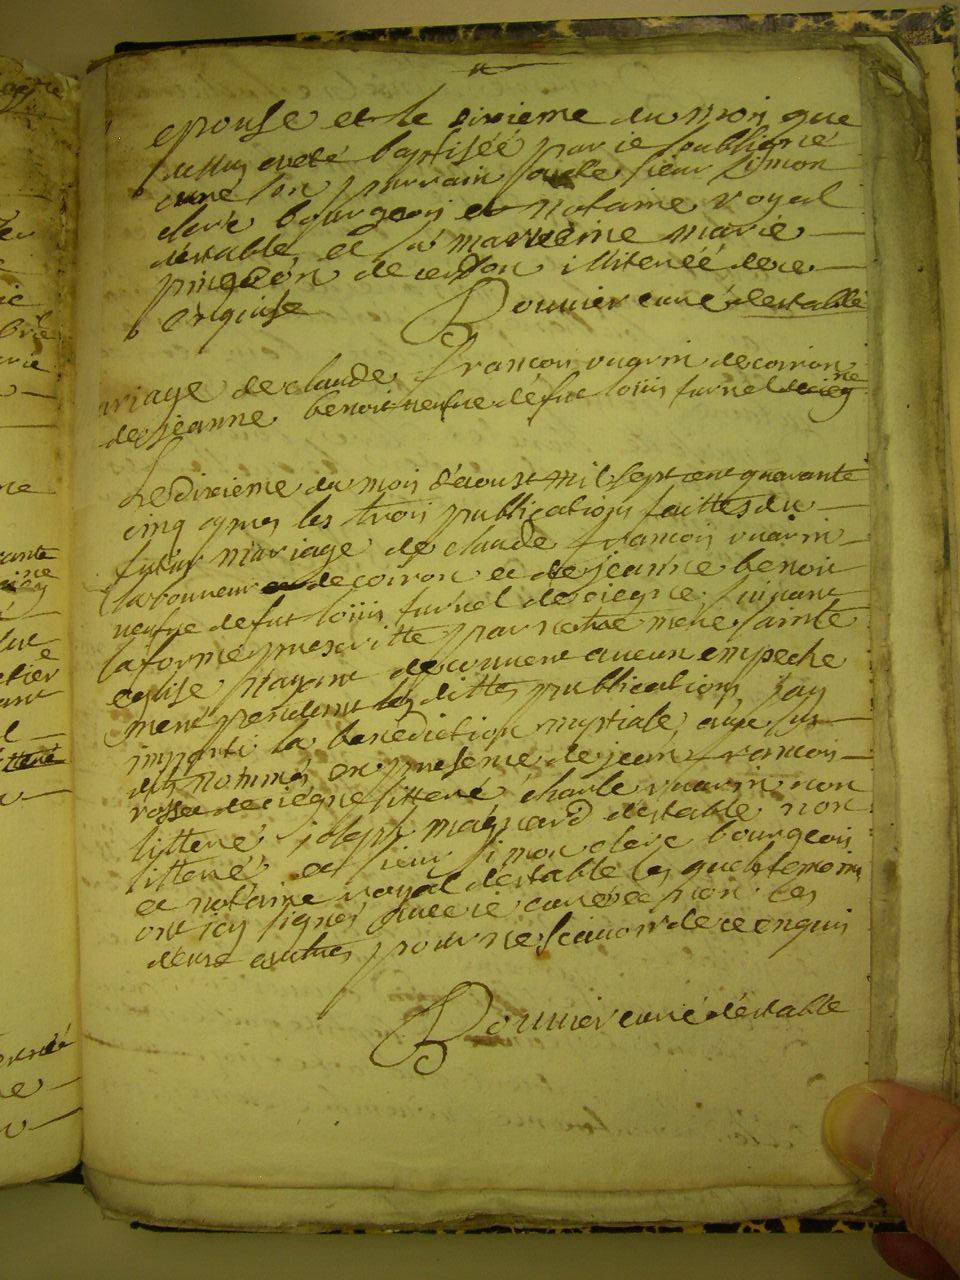 epouse et le dixieme du mois que
dessus a eté baptiséé par ie soubsigné
curé son parrain sieur Simon
clerc bourgeois et notaire royal
destable et sa marreine marie
pingeon de cerdon illiteréé de ce
enquise
Bonnier curé destable
ariage de claude françois vuarin de coiron
de jeanne benoit veufve de fut loüis furnel
Le dixieme du mois d'aoust mil sept cent quarante
cinq apres les trois publications faittes du
futur mariage de claude francois vuarin
laboureur de coiron et de jeanne benoit
veufve de fut loüis furnel de ciegne suivant
la forme prescritte par nottre mere sainte
eglise n'ayant decouvert aucun empeche
ment pendant les dittes publications j'ay
imparti la benediction nuptiale aux sus
dits nommés en presence de jean francois
rosset de ciegne litteré charle vuarin non
litteré joseph magnard destable non
litteré et sieur Simon clerc bourgeois
et notaire royal destable les quels temoins
ont icy signés avec ie curé et non les
deux autres pour ne scavoir de ce enquis
Bonnier curé destable